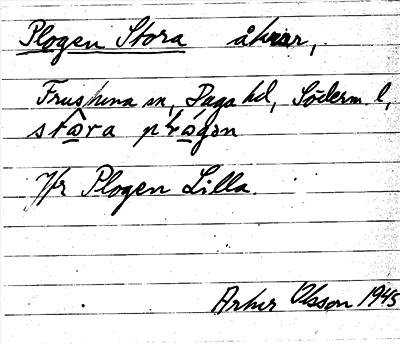 Plogen Stora åkrar,
Frustuna sn, Daga hd, Söderm. l,
stơra plơgən
Jfr Plogen Lilla.
Olsson 1945